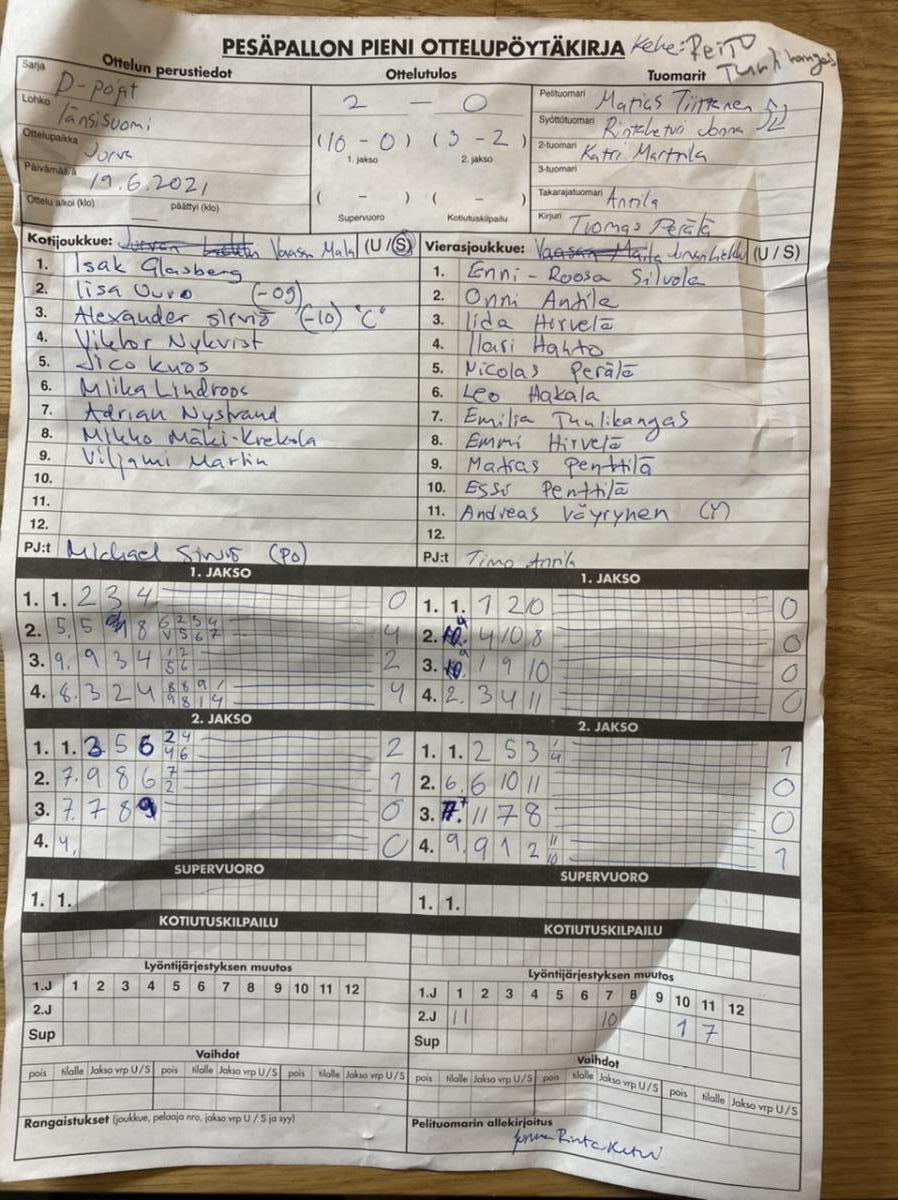 PESÄPALLON PIENI OTTELUPÖYTÄKIRJA Kehe: ReiTo
Tuulikangas
Ottelun perustiedot Ottelutulos Tuomarit
Sarja D-pojat
Lohko länsisuomi
Ottelupaikka Jurva
Päivämäärä 19.6.2021
Ottelu alkoi (klo) päättyi (klo)
2 — 0
(10 - 0) (3 - 2)
1. jakso 2. jakso
( - ) ( - )
Supervuoro Kotiutuskilpailu
Pelituomari Matias Tiittanen
Syöttötuomari Rintaketur Jonna
2-tuomari Katri Marttila
3-tuomari
Takarajatuomari Anttila
Kirjuri Tuomas Perälä
Kotijoukkue: Vaasan Maila (U / S)
1. Isak Glasberg
2. Iisa Uuro (-09)
3. Alexander Sirviö (-10) "C"
4. Viktor Nykvist
5. Jico Kuos
6. Miika Lindroos
7. Adrian Nystrand
8. Mikko Mäki-Krekola
9. Viljami Martin
10.
11.
12.
PJ:t Michael Sirviö (PO)
Vierasjoukkue: (U / S)
1. Enni-Roosa Silvola
2. Onni Antila
3. Iida Hirvelä
4. Ilari Hahto
5. Nicolas Perälä
6. Leo Hakala
7. Emilia Tuulikangas
8. Emmi Hirvelä
9. Matias Penttilä
10. Essi Penttilä
11. Andreas Väyrynen (Y)
12.
PJ:t Timo Antila
1. JAKSO
1. 1. 2 3 4 0
2. 5. 5 8 6 2 3 4 5 6 7 4
3. 9. 9 3 4 1 2 5 6 2
4. 8. 3 2 4 8 8 9 1 9 8 1 4 4
2. JAKSO
1. 1. 3 5 6 2 4 4 6 2
2. 7. 9 8 6 7 2 1
3. 7. 7 8 9 0
4. 4. 0
SUPERVUORO
1. 1.
KOTIUTUSKILPAILU
Lyöntijärjestyksen muutos
1.J 1 2 3 4 5 6 7 8 9 10 11 12
2.J
Sup
Vaihdot
pois tilalle Jakso vrp U / S pois tilalle Jakso vrp U / S pois tilalle Jakso vrp U / S
Rangaistukset (joukkue, pelaaja nro, jakso vrp U / S ja syy)
1. JAKSO
1. 1. 1 2 10 0
2. 4 10 8 0
3. 1 9 10 0
4. 2. 3 4 11 0
2. JAKSO
1. 1. 2 5 3 1 4 1
2. 6. 6 10 11 0
3. 7. 11 7 8 0
4. 9. 9 1 2 11 10 1
SUPERVUORO
1. 1.
KOTIUTUSKILPAILU
Lyöntijärjestyksen muutos
1.J 1 2 3 4 5 6 7 8 9 10 11 12
2.J 11 10 1 7
Sup
Vaihdot
pois tilalle Jakso vrp U / S pois tilalle Jakso vrp U / S pois tilalle Jakso vrp U / S
Pelituomarin allekirjoitus